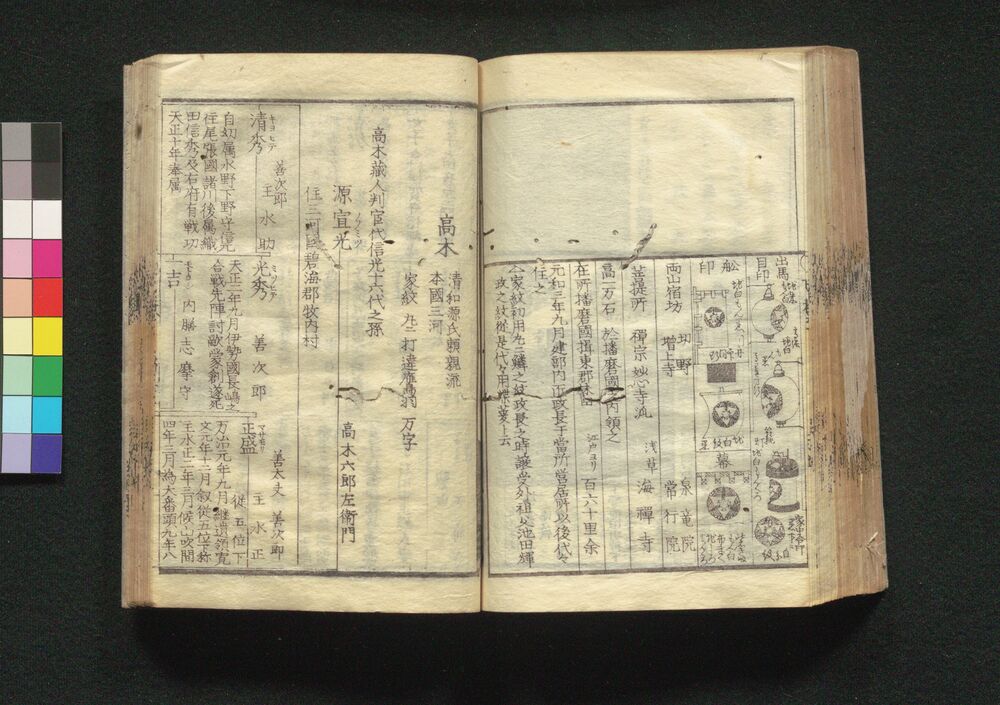 出馬
目印
舩
印
幕
紋
両山宿坊
切野
増上寺
泉竜院
常行院
菩提所
禪宗妙心寺派
浅草
海禪寺
高一万石
於播磨國之内領之
在所播磨國揖東郡林田
江戸ヨリ
百六十里余
元和三年九月建部内匠政長于當所営居所以後代々
行之
家紋初用九三鱗之紋政長之時譲受外祖父池田輝
政之紋従是代々用蝶菱上云
高木
清和源氏頼親流
本國三河
家紋
丸ニ打違鷹羽
万字
高木蔵人判官代信光十六代之孫
源宣光
ノブミツ
高木六郎左衛門
住三河國碧海郡牧内村
清秀
キヨヒデ
善次郎
主水助
自幼属水野下野守信元
住尾張國諸川後属織
田信秀及右府有戦功
天正十年奉属
光秀
ミツヒデ
善次郎
天正二年九月伊勢國長嶋之
合戦先陣討敵蒙創遂死
吉
内藤志摩守
正盛
マサモリ
善太夫
善次郎
主水正
従五位下
万治元年九月継遺領寛
文元年十二月叙従五位下称
主水正二年三月候山吹間
四年二月為大番頭九年八